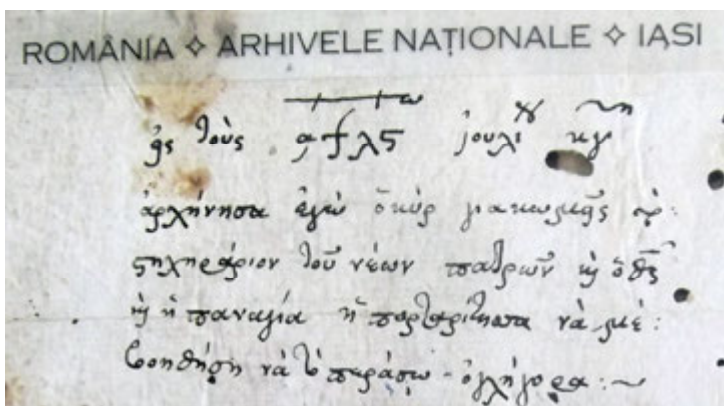 ROMÂNIA ✧ ARHIVELE NAȚIONALE ✧ IAȘI
τοὺς ͵αψλς ἰουλί κγ
ἀρχήνησα ἐγὼ ὁ κὺρ γιακωμῆς
στηχηράριον τοῦ νέων πατρῶν κὴ ὁ θς
κὴ ἡ παναγία ἡ πορταρίτησα νὰ μὲ:
βοηθήση νὰ τὸ περάσω ὀγλήγορα:~